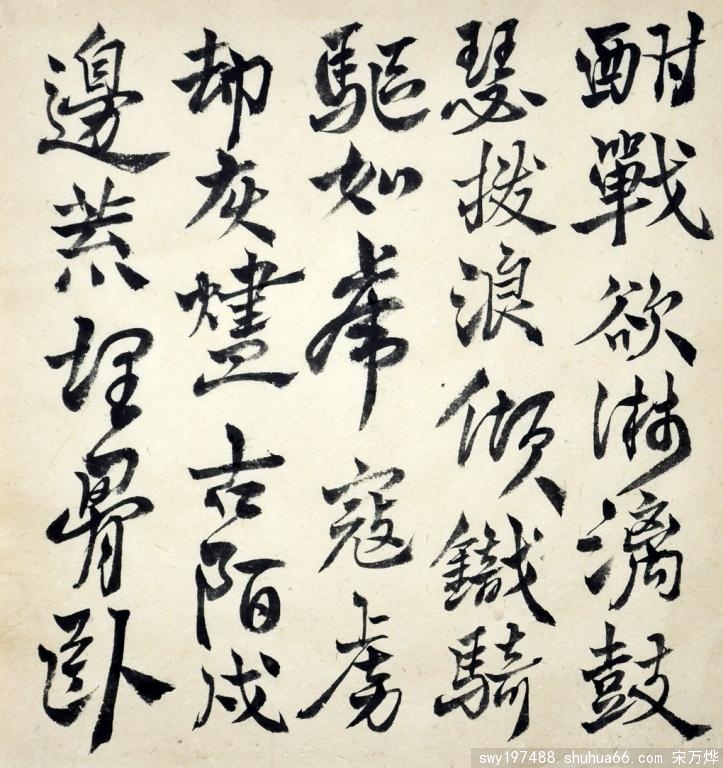 酣戰欲淋漓鼓
瑟撥浪傾鐵騎
驅如虎寇虜
劫灰燼古陌戍
邊荒埋骨卧
swy197488.shuhua66.com 宋万烨